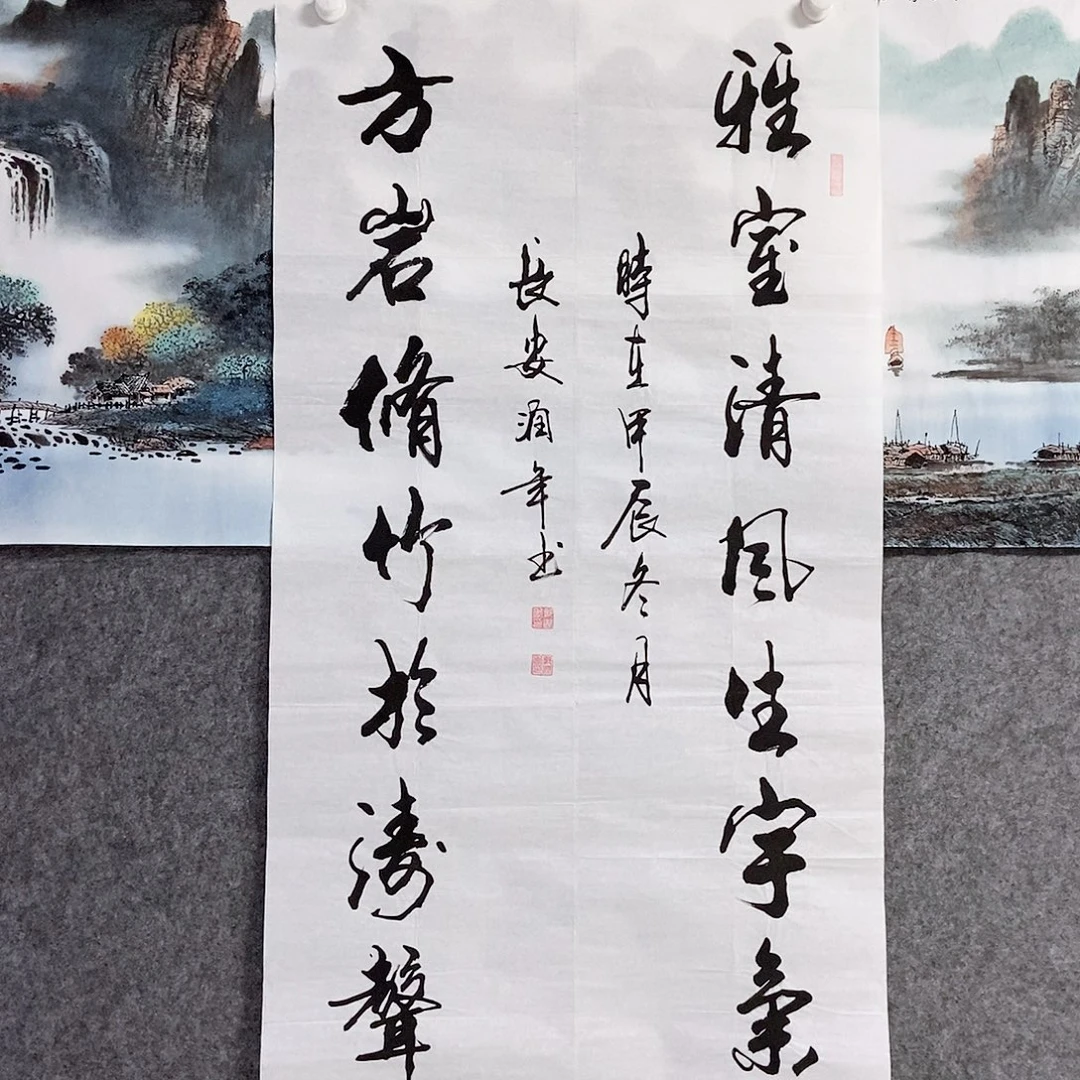 雅室清風生宇
方岩脩竹於濤聲
時在甲辰冬月
長安潤年书